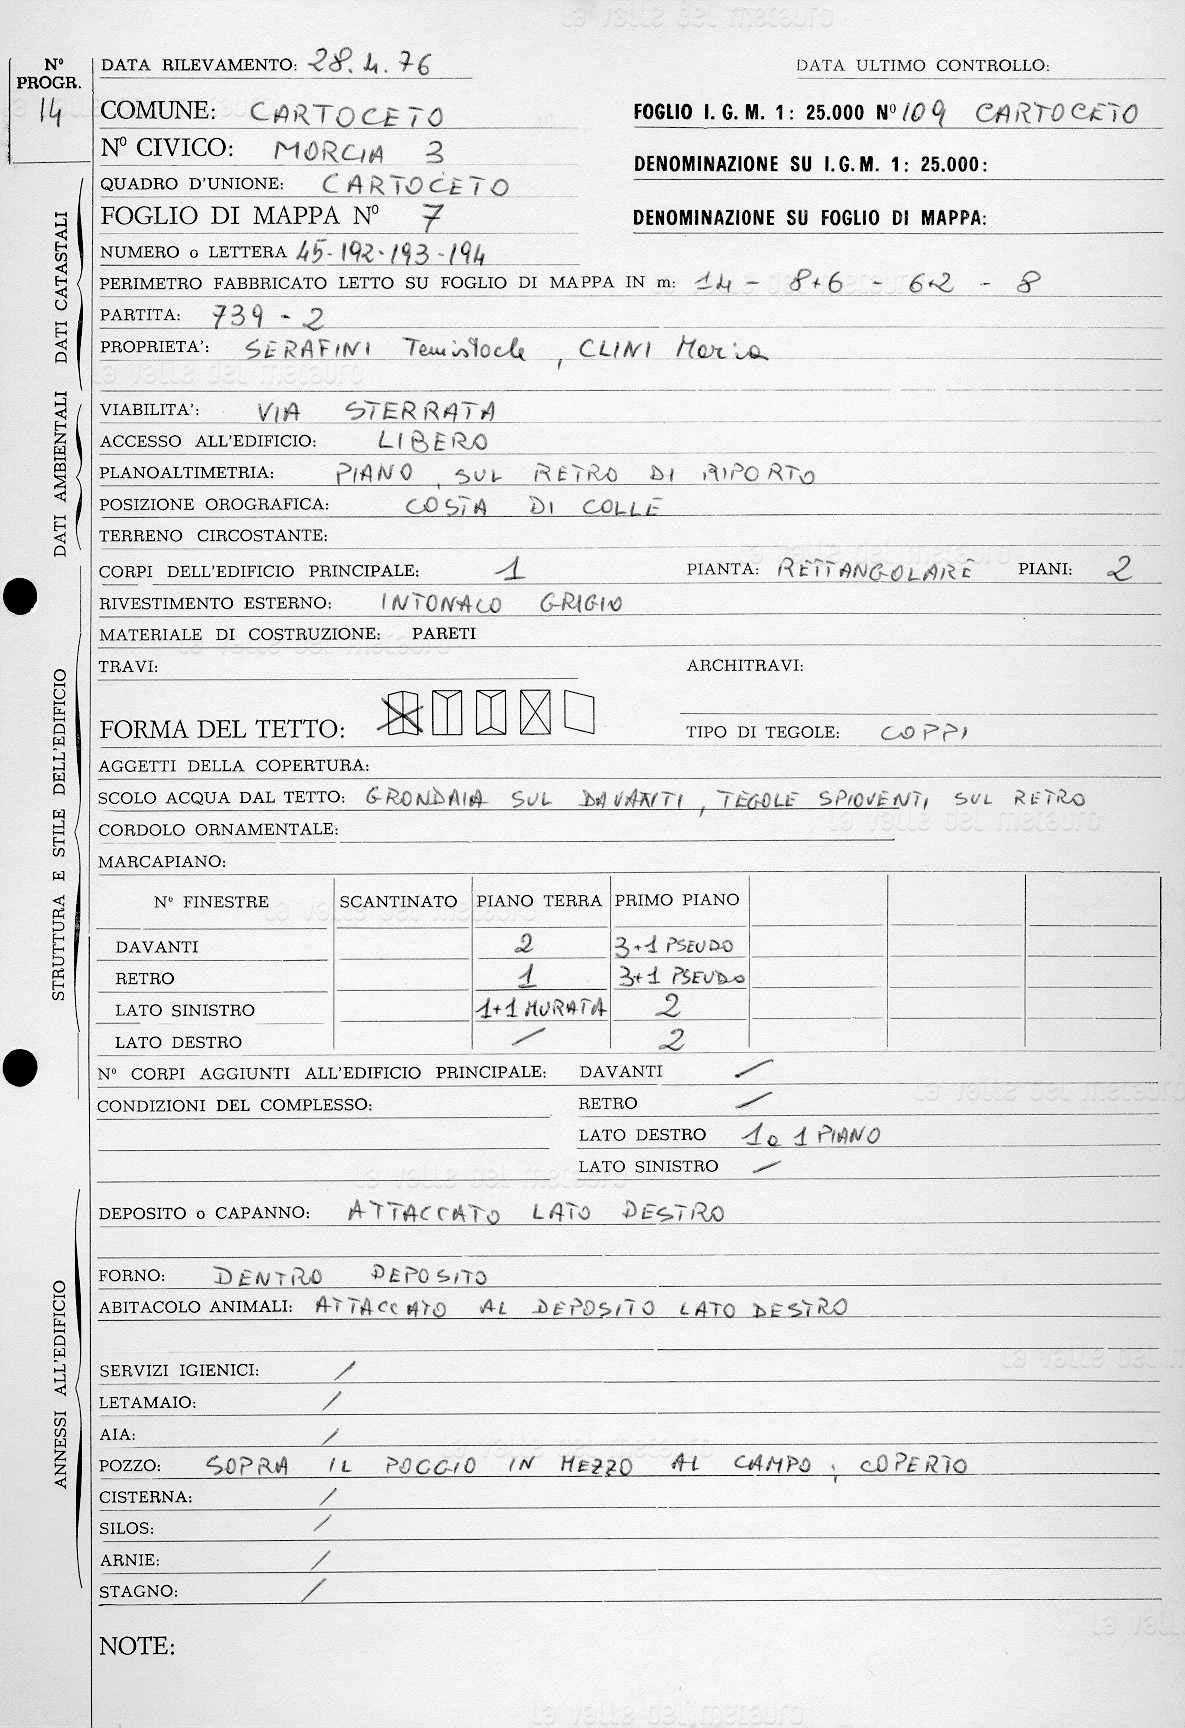 la valle del metauro
Nº PROGR. 14
DATA RILEVAMENTO: 28.4.76 DATA ULTIMO CONTROLLO:
COMUNE: CARTOCETO FOGLIO I. G. M. 1: 25.000 Nº 109 CARTOCETO
Nº CIVICO: MORCIA 3 DENOMINAZIONE SU I.G.M. 1: 25.000:
QUADRO D'UNIONE: CARTOCETO
FOGLIO DI MAPPA Nº 7 DENOMINAZIONE SU FOGLIO DI MAPPA:
NUMERO o LETTERA 45-192-193-194
PERIMETRO FABBRICATO LETTO SU FOGLIO DI MAPPA IN m: 14 - 8+6 - 6+2 - 8
PARTITA: 739 - 2
PROPRIETA': SERAFINI Temistocle, CLINI Maria
DATI CATASTALI
VIABILITA': VIA STERRATA
ACCESSO ALL'EDIFICIO: LIBERO
PLANOALTIMETRIA: PIANO, SUL RETRO DI RIPORTO
POSIZIONE OROGRAFICA: COSTA DI COLLE
TERRENO CIRCOSTANTE:
DATI AMBIENTALI
CORPI DELL'EDIFICIO PRINCIPALE: 1 PIANTA: RETTANGOLARE PIANI: 2
RIVESTIMENTO ESTERNO: INTONACO GRIGIO
MATERIALE DI COSTRUZIONE: PARETI
TRAVI: ARCHITRAVI:
FORMA DEL TETTO: TIPO DI TEGOLE: COPPI
AGGETTI DELLA COPERTURA:
SCOLO ACQUA DAL TETTO: GRONDAIA SUL DAVANTI, TEGOLE SPIOVENTI SUL RETRO
CORDOLO ORNAMENTALE:
MARCAPIANO:
Nº FINESTRE SCANTINATO PIANO TERRA PRIMO PIANO
DAVANTI 2 3+1 PSEUDO
RETRO 1 3+1 PSEUDO
LATO SINISTRO 1+1 MURATA 2
LATO DESTRO / 2
STRUTTURA E STILE DELL'EDIFICIO
Nº CORPI AGGIUNTI ALL'EDIFICIO PRINCIPALE: DAVANTI /
CONDIZIONI DEL COMPLESSO: RETRO /
LATO DESTRO 1 a 1 PIANO
LATO SINISTRO /
DEPOSITO o CAPANNO: ATTACCATO LATO DESTRO
FORNO: DENTRO DEPOSITO
ABITACOLO ANIMALI: ATTACCATO AL DEPOSITO LATO DESTRO
SERVIZI IGIENICI: /
LETAMAIO: /
AIA: /
POZZO: SOPRA IL POGGIO IN MEZZO AL CAMPO, COPERTO
CISTERNA: /
SILOS: /
ARNIE: /
STAGNO: /
ANNESSI ALL'EDIFICIO
NOTE:
la valle del metauro